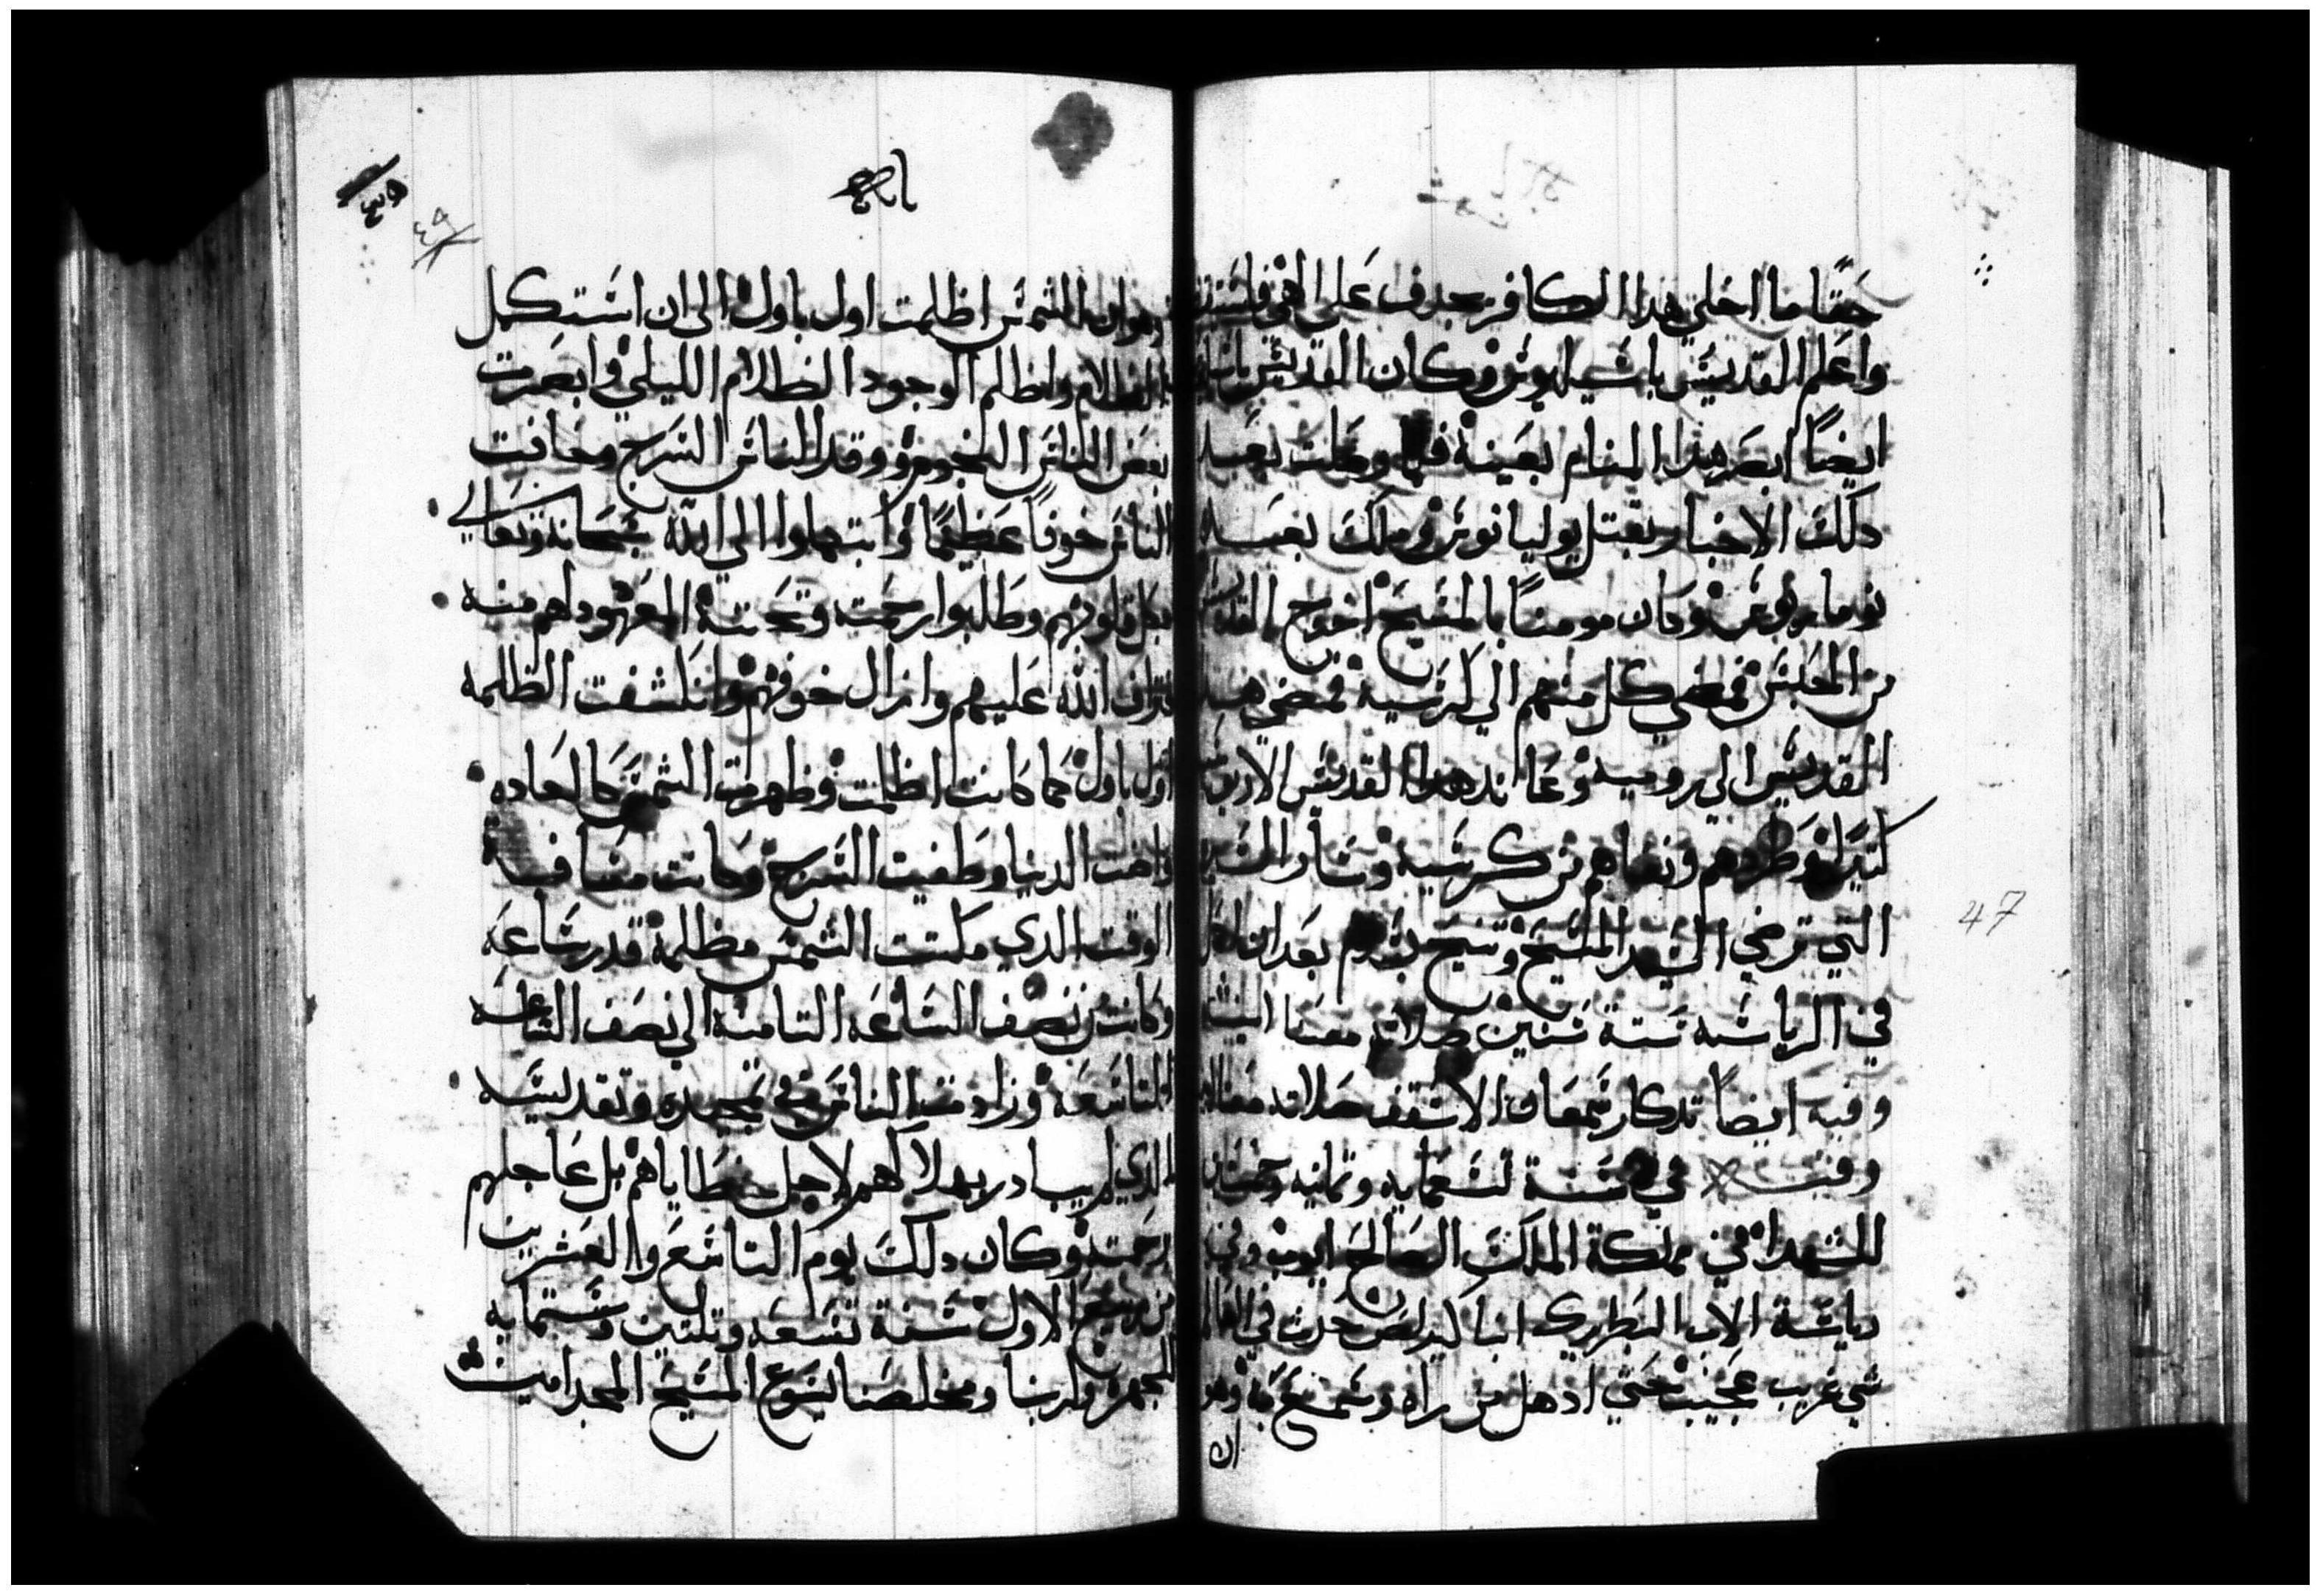 حقًا ما اخلي هدا الكافر يجدف على الاهي فاستيقظ
واعلم القديس باسيليوس وكان القديس باسيليوس
ايضًا ابصر هدا المنام بعينه فيها وجات بعد
دلك الاخبار بقتل يوليانوس وملك بعده
يوبيانوس وكان مومنًا بالمسيح اخرج القديسين
من الحبس فمضي كل منهم الي كرسيه فمضي هدا
القديس الي روميه وعاند هدا القديس الاريوسيين
كتيرًا وطردهم ونفاهم من كرسيه وسار السيره
التي ترضي السيد المسيح وتنيح بسلام بعد ان اقام
في الرياسه ستة سنين صلاته معنا امين
وفيه ايضًا تدكار سمعان الاسقف صلاته معنا امين
وفيه في سنة تسعمايه وتمانيه وخمسين
للشهدا في مملكة الملك الصالح ايوب وفي
رياسة الاب البطريرك انبا كيرلص حدث في العالم
شي غريب عجيب حتي ادهل من راه وسمع به وهو
ان
٤٨
وهو ان الشمس اظلمت اول باول الى ان استكمل
الظلام واظلم الوجود الظلام الليلي وابصرت
بعض الناس النجوم ووقد الناس السرج وخافت
الناس خوفًا عظيمًا وابتهلوا الي الله سبحانه وتعالي
بكل قلوبهم وطلبوا رحمته وتحننه المعهود لهم منه
فتراف الله عليهم وازال خوفهم وانكشفت الظلمه
اول باول كما كانت اظلمت وظهرت الشمس كالعاده
واضت الدنيا وطفيت السرج وكانت مسافة
الوقت الدي مكتت الشمس مظلمة قدر ساعه
وكانت من نصف الساعه التامنه الي نصف الساعه
التاسعه وزادت الناس في تمجيده وتقديسه
الدي لم يبادر بهلاكهم لاجل خطاياهم بل عاجلهم
برحمته وكان دلك يوم التاسع والعشرين
من ربيع الاول سنة تسعه وتلتين وستمايه
للهجره ولربنا ومخلصنا يسوع المسيح المجد امين
47